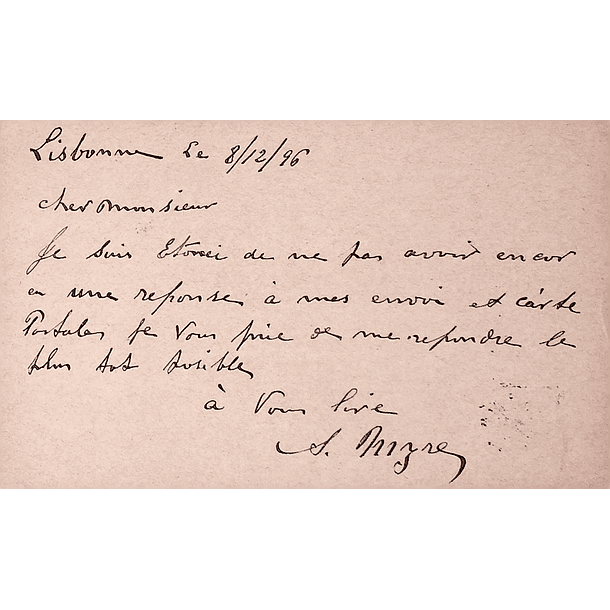 Lisbonne Le 8/12/96
cher monsieur
Je suis Etonei de ne pas avoir encor
eu une reponse à mes envoi et carte
Postales je vous prie de me repondre le
plus tot posible
à vous lire
S.